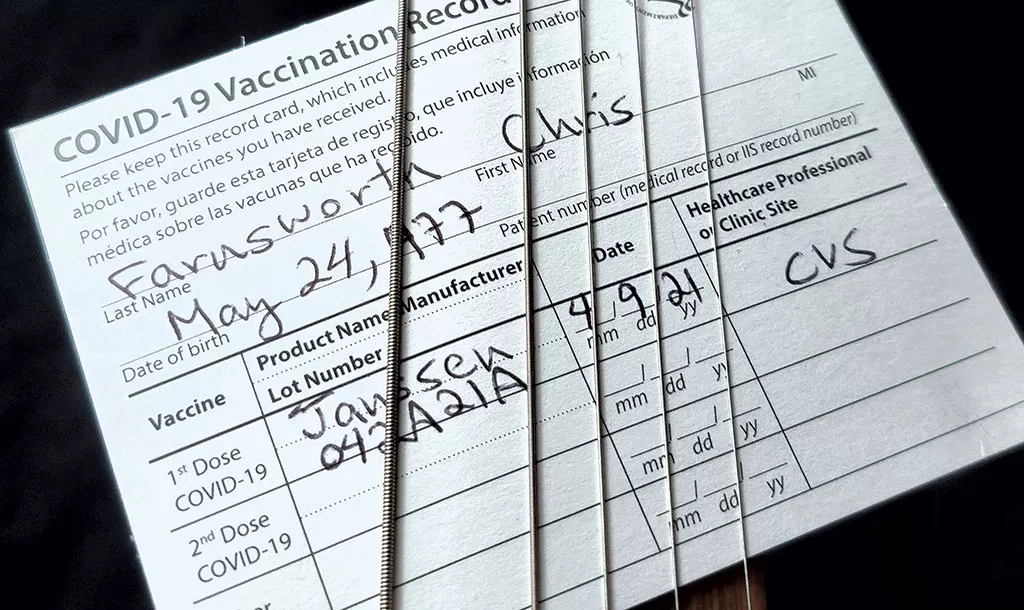 COVID-19 Vaccination Record
Please keep this record card, which includes medical information
about the vaccines you have received.
Por favor, guarde esta tarjeta de registro, que incluye información
médica sobre las vacunas que ha recibido.
Farnsworth Chris
Last Name First Name MI
May 24, 1977
Date of birth Patient number (medical record or IIS record number)
Vaccine Product Name Manufacturer Date Healthcare Professional
Lot Number or Clinic Site
1st Dose Janssen 4 / 9 21 CVS
COVID-19 042A21A mm dd yy
2nd Dose / / 
COVID-19 mm dd yy
/ /
mm dd yy
/ /
mm dd yy